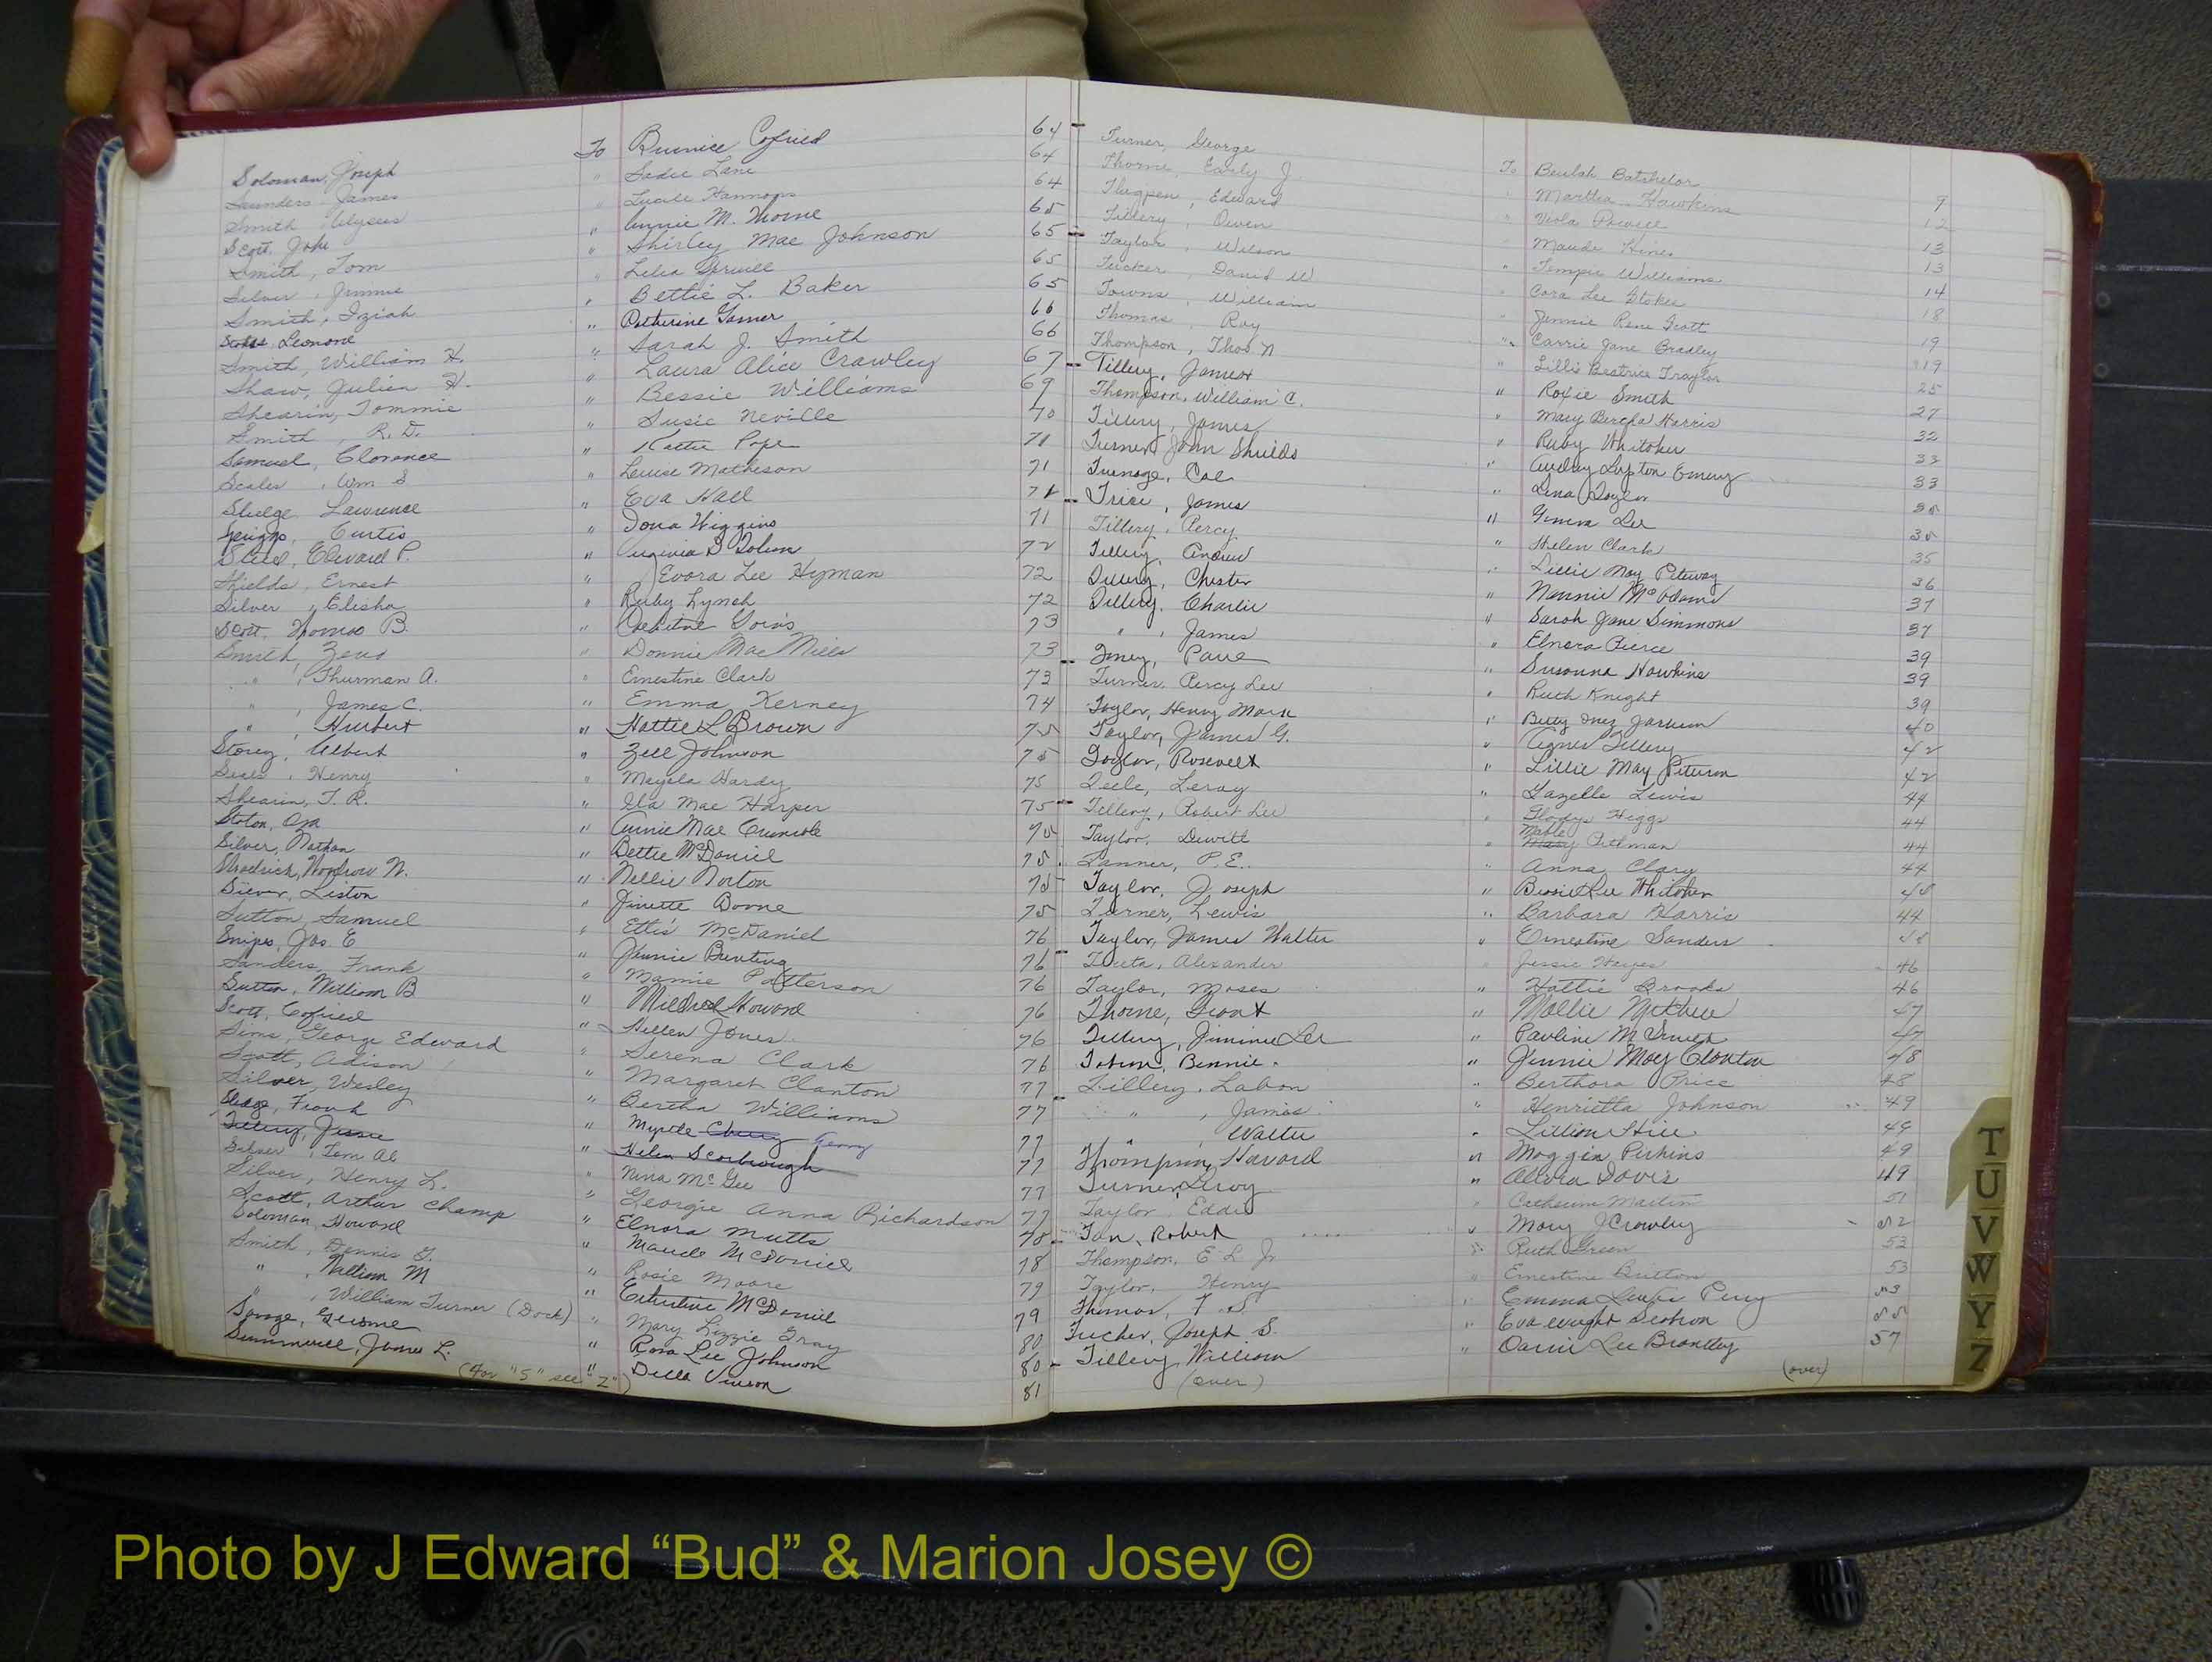 Soloman, Joseph To Bernice Cofield 64
Saunders James " Sadie Lane 64
Smith, Ulyses " Lucile Hammons 64
Scott, John " Annie M. Thorne 65
Smith, Tom " Shirley Mae Johnson 65
Silver, Jimmie " Lelia Spruill 65
Smith, Iziah " Bettie L. Baker 65
Leonard " Catherine Garner 66
Smith, William H. " Sarah J. Smith 66
Shaw, Julien H. " Laura Alice Crawley 67
Shearin, Tommie " Bessie Williams 69
Smith, R.D. " Susie Neville 70
Samuel, Clarence " Kattie Pope 71
Scales, Wm S " Louise Matheson 71
Sledge, Lawrence " Eva Hall 71
Spriggs, Curtis " Iona Wiggins 71
Steed, Edward P. " Virginia 72
Shields, Ernest " Evora Lee Hyman 72
Silver, Elisha " Ruby Lynch 72
Scott, Thomas B. " Goins 73
Smith, Zeno " Donnie Mae Mills 73
" , Thurman A. " Ernestine Clark 73
" , James C. " Emma Kerney 74
" , Hurbert " Hattie L Brown 75
Storey, Albert " Zell Johnson 75
Seals, Henry " Hardy 75
Shearin, T. R. " Ila Mae Harper 75
Staton, Ora " Annie Mae 75
Silver, Nathan " Bettie McDaniel 75
Woodrow W. " Nellie Norton 75
Silver, Liston " Jinette Boone 75
Sutton, Samuel " Ettis McDaniel 76
Snipes, Jas. E " Jennie Bunting 76
Sanders, Frank " Mamie Patterson 76
Sutton, William B " Mildred Howard 76
Scott, Cofield " Hellen Jones 76
Sims, George Edward " Serena Clark 76
Scott, Adison " Margaret Clanton 77
Silver, Wesley " Bertha Williams 77
Sledge, Frank " Myrtle Cherry 77
Tillery, Jessie " Helen Scarbrough 77
Silver, Lem Al " Nina McGee 77
Silver, Henry L. " Georgie Anna Richardson 77
Scott, Arthur Champ " Elnora Mutts 78
Soloman, Howard " Maude McDaniel 78
Smith, Dennis G. " Rosie Moore 79
" , William M " McDaniel 79
" , William Turner (Dock) " Mary Lizzie Gray 80
Savage, Gerome " Rosa Lee Johnson 80
Summerell, James L. " Della Vinson 81
(For "S" see "Z")
Turner, George To Beulah Batchelor 9
Thorne, Early J. " Martha Hawkins 12
Thigpen, Edward " Viola Powell 13
Tillery, Owen " Maude Hines 13
Taylor, Wilson " Tempie Williams 14
Tucker, David W " Cora Lee Stokes 18
Towns, William " Jennie Rene Scott 19
Thomas, Roy " Carrie Jane Bradley 19
Thompson, Thos. N " Lillie Beatrice Traylor 25
Tillery, James " Roxie Smith 27
Thompson, William C. " Mary Bertha Harris 32
Tillery, James " Ruby Whitaker 33
Turner, John Shields " Audrey Lupton Emery 33
Turnage, Cal " Lena Taylor 35
Trice, James " Geneva Lee 35
Tillery, Percy " Helen Clark 35
Tillery, Andrew " Lillie May Peteway 36
Tillery, Chester " Nannie McAdams 37
Tillery, Charlie " Sarah Jane Simmons 37
" , James " Elnora Pierce 39
Toney, Paul " Susanna Hawkins 39
Turner, Percy Lee " Ruth Knight 39
Taylor, Henry Mark " Betty Inez Jackson 40
Taylor, James G. " Agnes Tillery 42
Taylor, Rosevelt " Lillie May Peterson 42
Teele, Leroy " Lazelle Lewis 44
Tillery, Robert Lee " Gladys Higgs 44
Taylor, Dewitt " Mable Mary Pittman 44
Tanner, P.E. " Anna Clary 44
Taylor, Joseph " Bessie Lee Whitaker 45
Turner, Lewis " Barbara Harris 44
Taylor, James Walter " Ernestine Sanders
Alexander " Jessie Hayes 46
Taylor, Moses " Hattie Brooks 46
Thorne, Grant " Mollie 47
Tillery, Jimmie Lee " Pauline M Smith 47
Bennie " Jennie May Clanton 48
Tillery, Labon " Berthora Price 48
" , James " Henrietta Johnson 49
" , Walter " Lillian Hill 49
Thompson, Havard " Maggie Perkins 49
Turner, Leroy " Davis 49
Taylor, Eddie " Catherine Martin 51
Tan, Robert " Mary J Crowley 52
Thompson, E L Jr " Ruth Green 53
Taylor, Henry " Ernestine Britton 53
Thomas, T. S. " Emma Perry 53
Tucker, Joseph S. " Eva Wright 55
Tillery, William " Lee Brantley 57
(over) (over)
T
U
V
W
Y
Z
Photo by J Edward “Bud” & Marion Josey ©